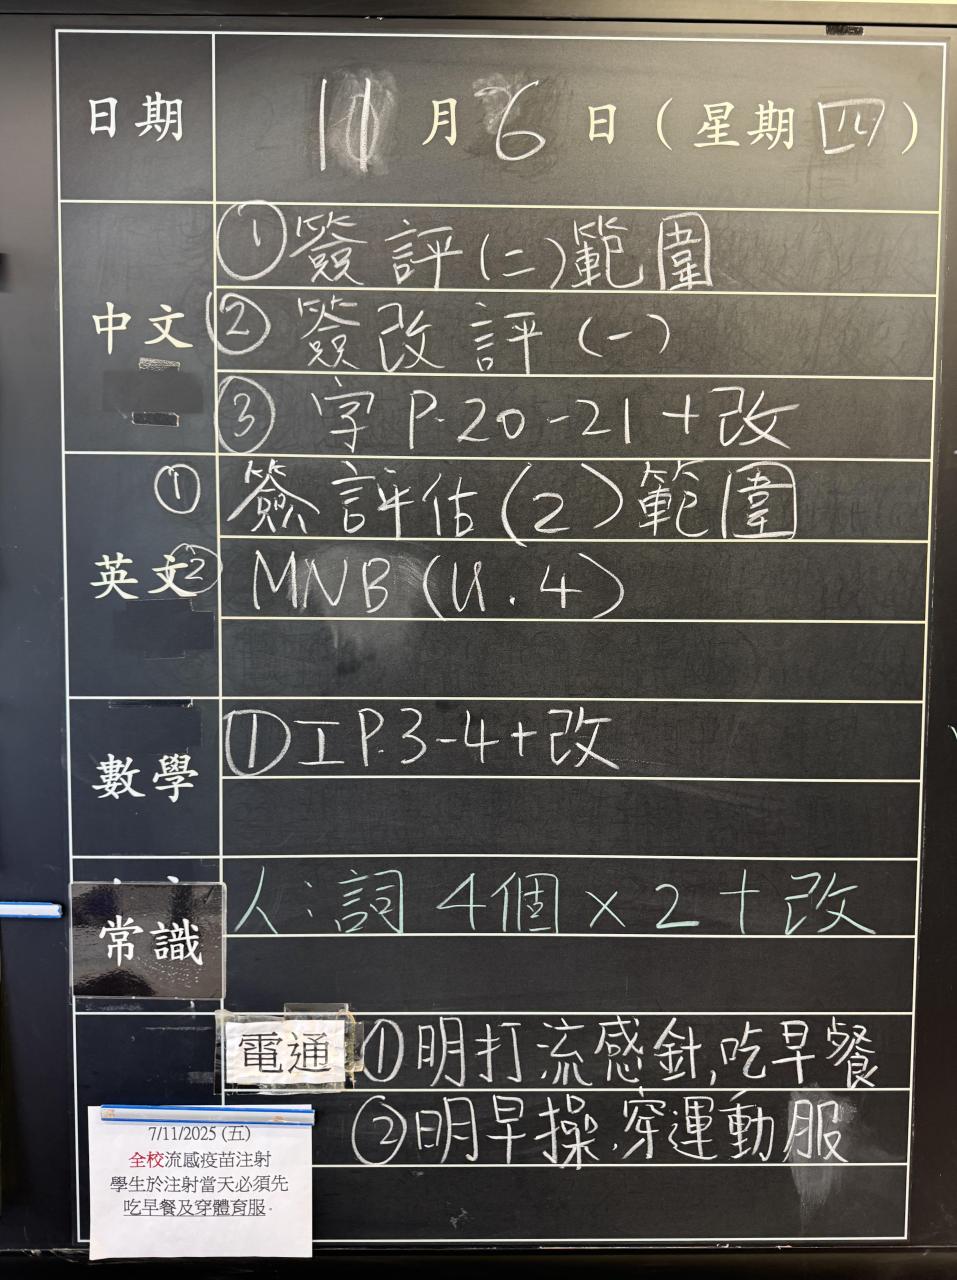 日期 11月6日(星期四)
中文
①簽評(二)範圍
②簽改評(一)
③字P.20-21+改
英文
①簽評估(2)範圍
②MNB(U.4)
數學
①工P.3-4+改
常識
人:詞4個×2+改
電通 ①明打流感針,吃早餐
②明早操,穿運動服
7/11/2025(五)
全校流感疫苗注射
學生於注射當天必須先
吃早餐及穿體育服。